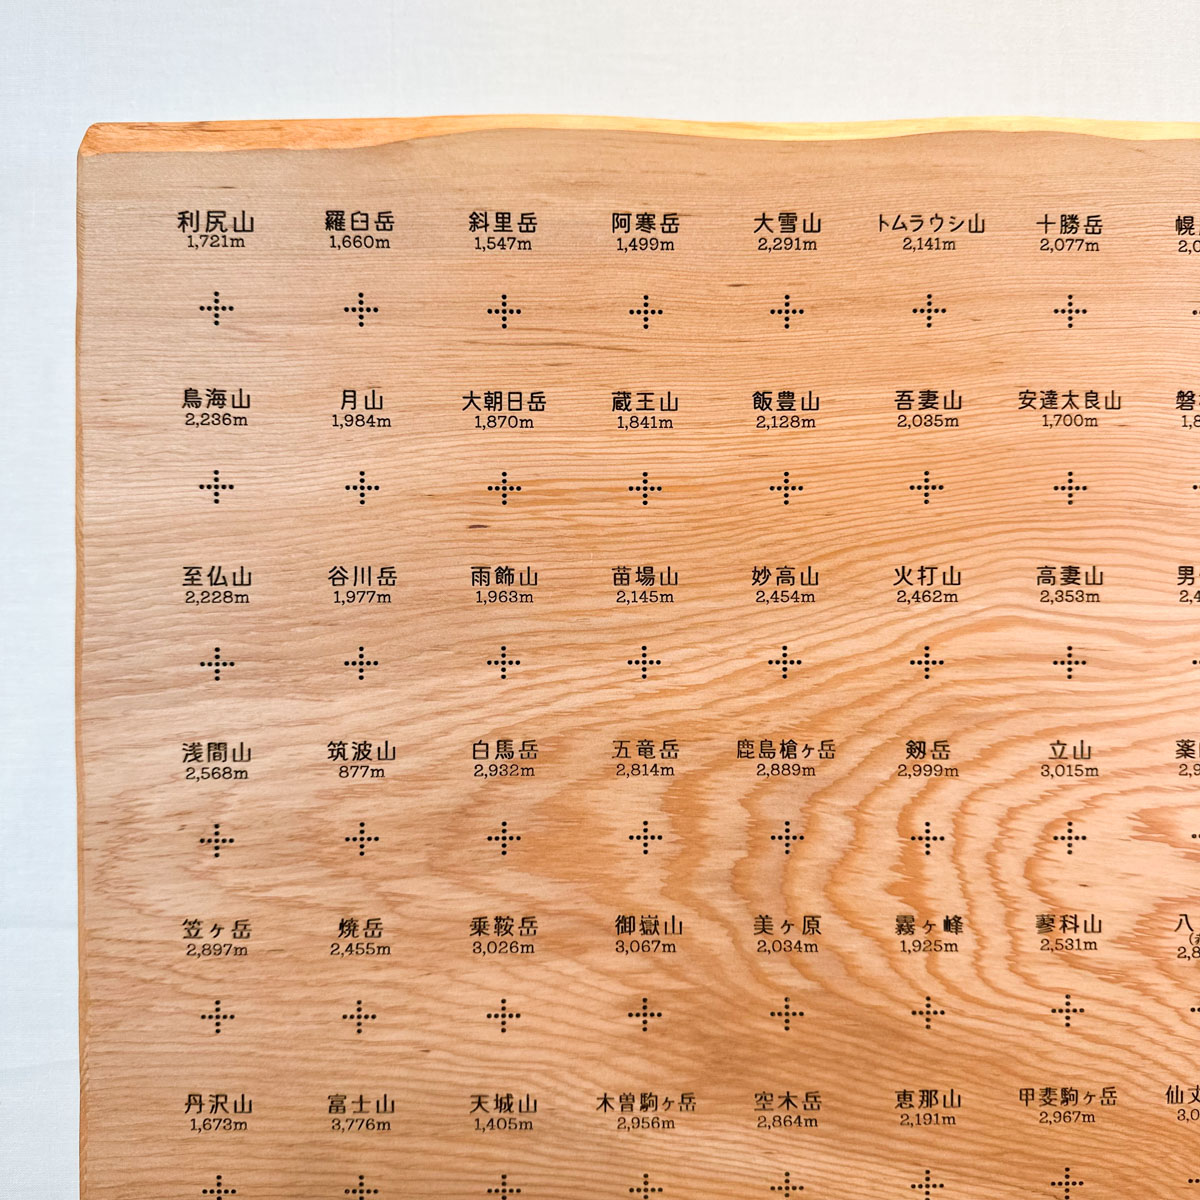 利尻山 羅臼岳 斜里岳 阿寒岳 大雪山 トムラウシ山 十勝岳
1,721m 1,660m 1,547m 1,499m 2,291m 2,141m 2,077m
鳥海山 月山 大朝日岳 蔵王山 飯豊山 吾妻山 安達太良山
2,236m 1,984m 1,870m 1,841m 2,128m 2,035m 1,700m
至仏山 谷川岳 雨飾山 苗場山 妙高山 火打山 高妻山 男
2,228m 1,977m 1,963m 2,145m 2,454m 2,462m 2,353m
浅間山 筑波山 白馬岳 五竜岳 鹿島槍ヶ岳 剱岳 立山 薬
2,568m 877m 2,932m 2,814m 2,889m 2,999m 3,015m
笠ヶ岳 焼岳 乗鞍岳 御嶽山 美ヶ原 霧ヶ峰 蓼科山 八
2,897m 2,455m 3,026m 3,067m 2,034m 1,925m 2,531m
丹沢山 富士山 天城山 木曽駒ヶ岳 空木岳 恵那山 甲斐駒ヶ岳 仙丈
1,673m 3,776m 1,405m 2,956m 2,864m 2,191m 2,967m